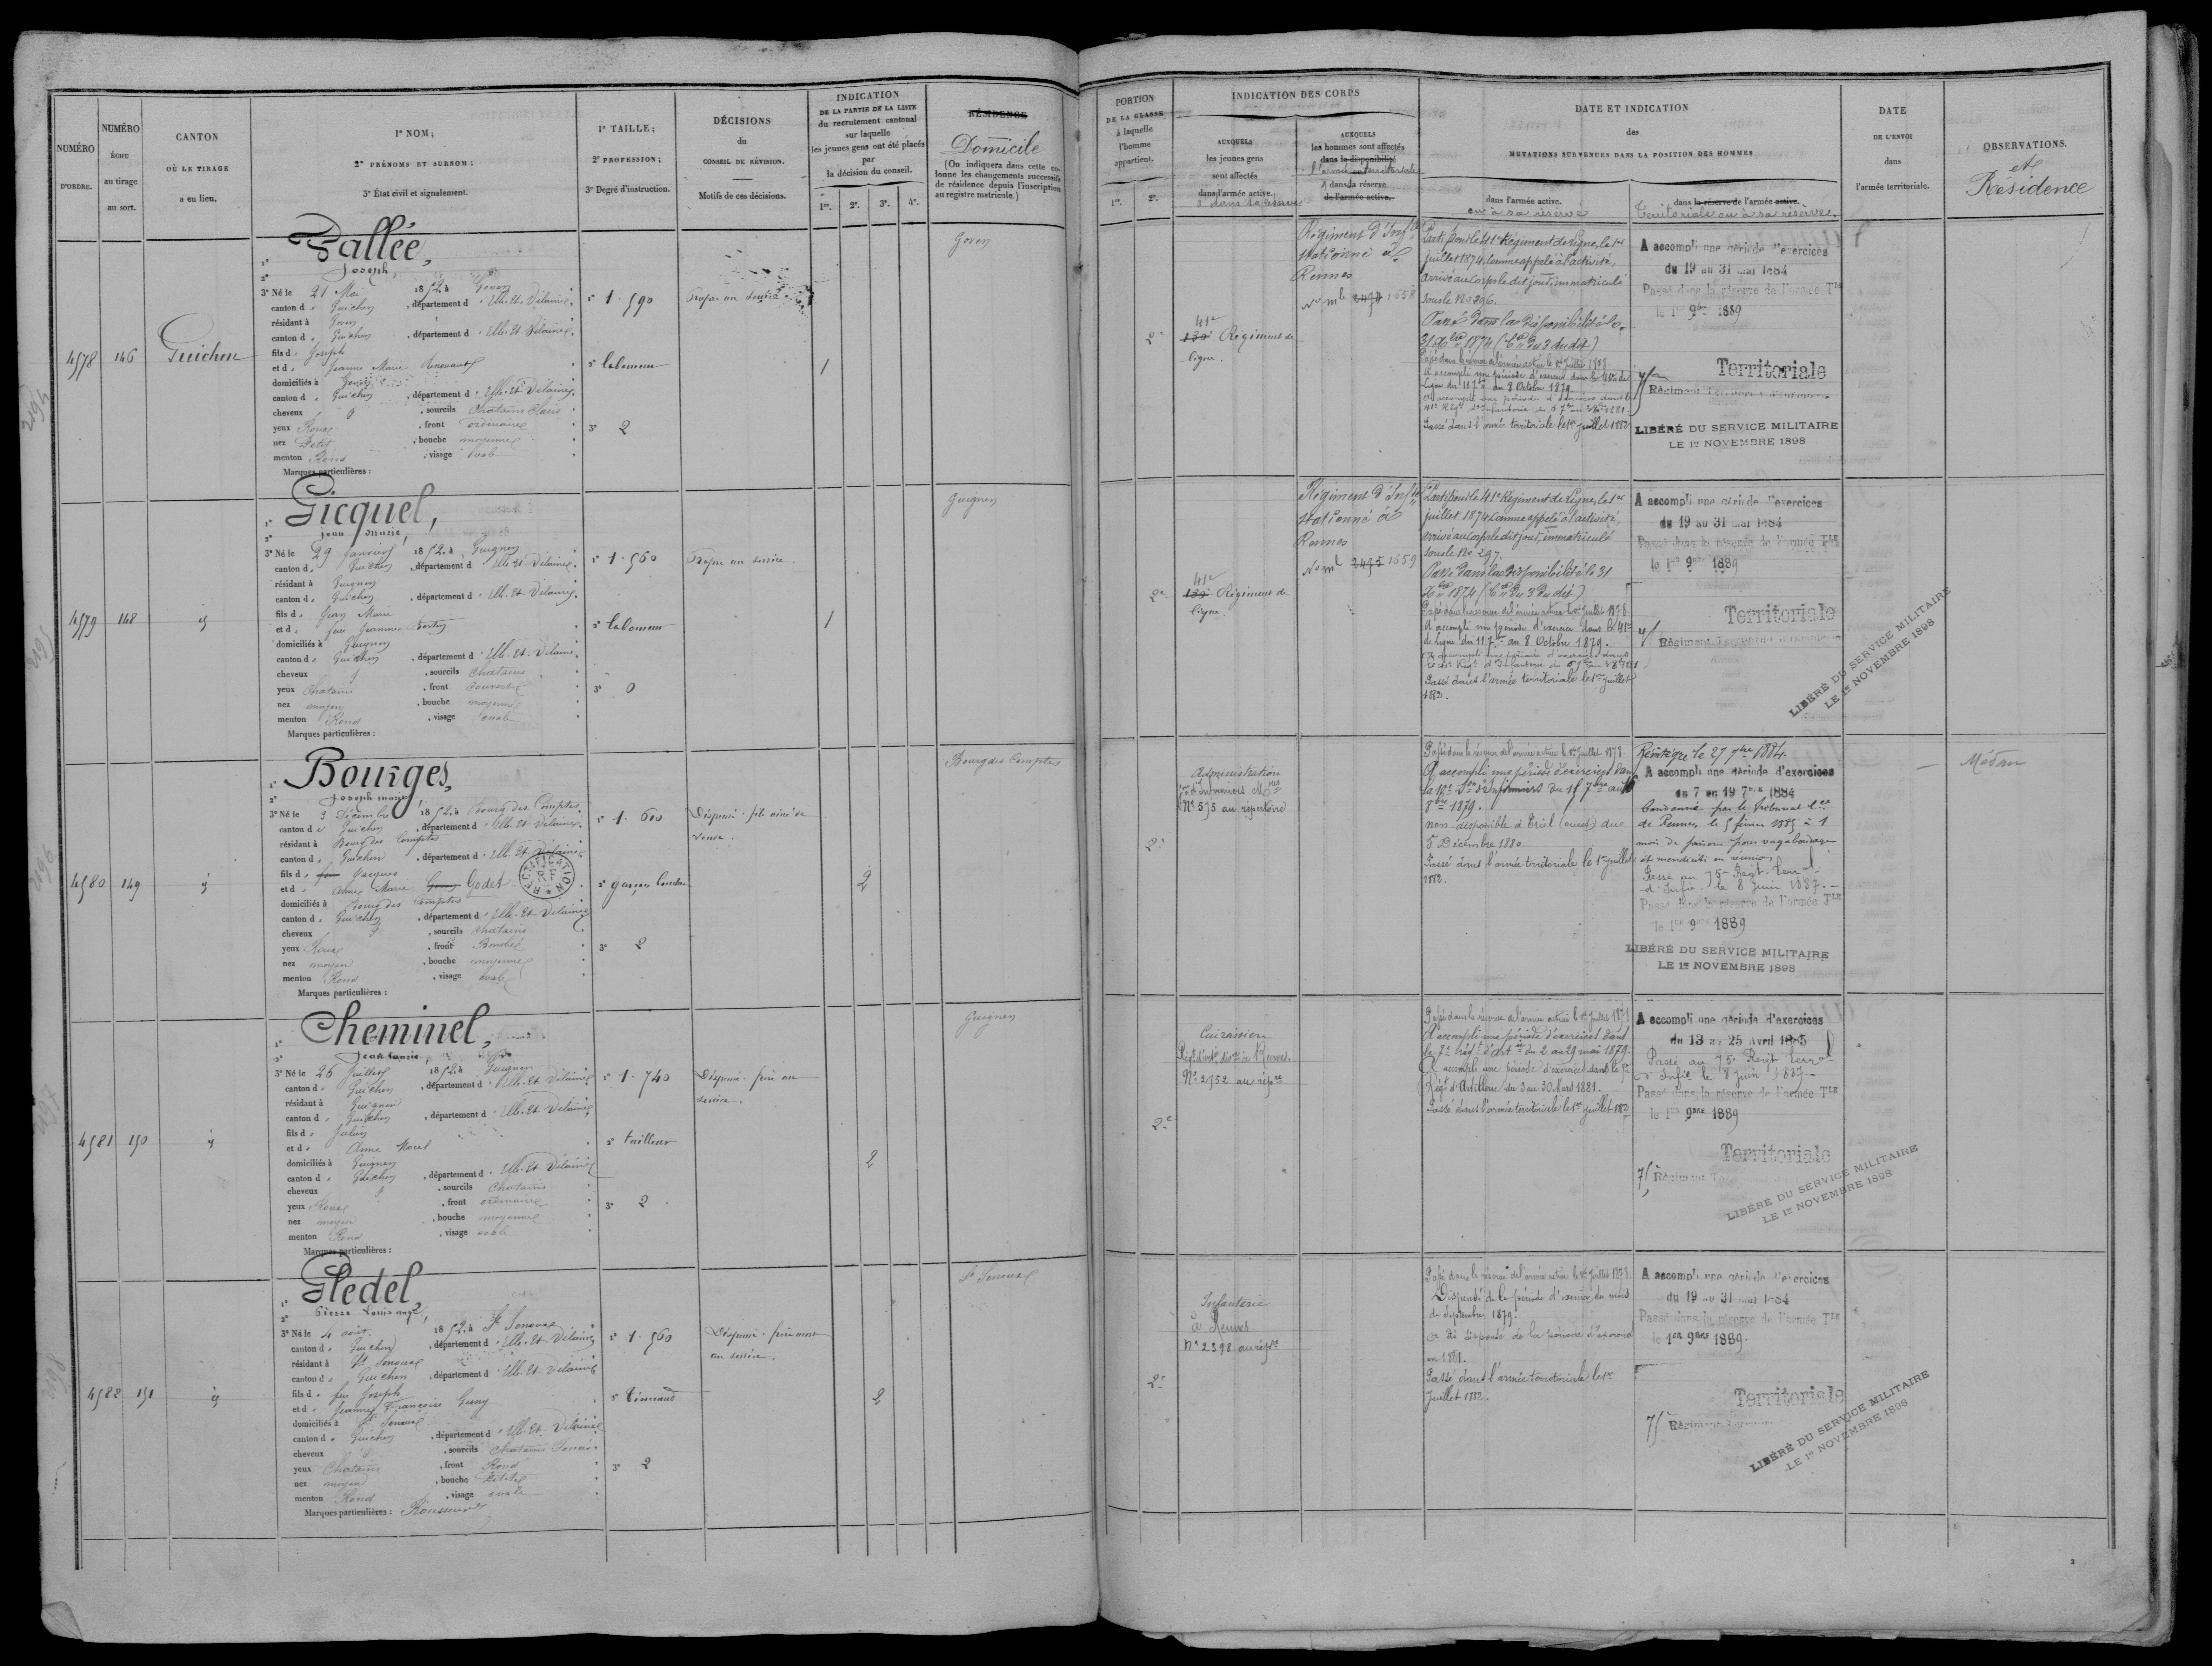 NUMÉRO
D'ORDRE.
NUMÉRO
ÉCHU
au tirage
au sort.
CANTON
OÙ LE TIRAGE
a eu lieu.
1º NOM;
2º PRÉNOMS ET SURNOM;
3º État civil et signalement.
1º TAILLE;
2º PROFESSION;
3º Degré d'instruction.
DÉCISIONS
du
CONSEIL DE RÉVISION.
Motifs de ces décisions.
INDICATION
DE LA PARTIE DE LA LISTE
du recrutement cantonal
sur laquelle
les jeunes gens ont été placés
par
la décision du conseil.
1re. 2e. 3e. 4e.
RÉSIDENCE
Domicile
(On indiquera dans cette co-
lonne les changements successifs
de résidence depuis l'inscription
au registre matricule)
PORTION
DE LA CLASSE
à laquelle
l'homme
appartient.
1re. 2e.
INDICATION DES CORPS
AUXQUELS
les jeunes gens
sont affectés
dans l'armée active.
& dans sa réserve
AUXQUELS
les hommes sont affectés
dans la disponibilité
l'armée territoriale
& dans la réserve
de l'armée active.
DATE ET INDICATION
des
MUTATIONS SURVENUES DANS LA POSITION DES HOMMES
dans l'armée active.
ou à sa réserve
dans la réserve de l'armée active.
Territoriale ou à sa réserve.
DATE
DE L'ENVOI
dans
l'armée territoriale.
OBSERVATIONS.
et
Résidence
4578 146 Guichen
1º Vallée,
2º Joseph,
3º Né le 21 Mai 1852, à Goven
canton de Guichen, département d'Ille-Et-Vilaine,
résidant à Goven
canton de Guichen, département d'Ille-Et-Vilaine,
fils de Joseph
et de Jeanne Marie
domiciliés à Goven
canton de Guichen, département d'Ille-Et-Vilaine,
cheveux, sourcils Chatains Clairs
yeux Roux, front ordinaire
nez Petit, bouche moyenne
menton Rond, visage ovale
Marques particulières :
1º 1.590
2º laboureur
3º 2
Propre au service
1
Goven
2e
41e
139e Régiment de
ligne.
Régiment d'Infie
stationné à
Rennes
No mle 2494 1658
Parti pour le 41e Régiment de Ligne, le 1er
juillet 1874, comme appelé à l'activité,
arrivé au Corps le dit jour, immatriculé
sous le No 296.
Passé dans la disponibilité le
31 Xbre 1874 (Con du 3 du dit)
Passé dans la réserve de l'armée active le 1er Juillet 1878
A accompli une période d'exercice dans le 41e de
Ligne du 11 7bre au 8 Octobre 1879.
A accompli une période d'exercices dans le
41e Régt d'Infanterie du
Passé dans l'armée territoriale le 1er juillet 1882
A accompli une période d'exercices
du 19 au 31 mai 1884
Passé dans la réserve de l'armée Tle
le 1er 9bre 1889
Territoriale
75e Régiment Territorial d'Infanterie
LIBÉRÉ DU SERVICE MILITAIRE
LE 1er NOVEMBRE 1898
4579 148 id
1º Gicquel,
2º jean marie,
3º Né le 29 Janvier 1852, à Guignen
canton de Guichen, département d'Ille-Et-Vilaine,
résidant à Guignen
canton de Guichen, département d'Ille-Et-Vilaine,
fils de Jean Marie
et de feue Jeanne
domiciliés à Guignen
canton de Guichen, département d'Ille-Et-Vilaine,
cheveux, sourcils Chatains
yeux Chatains, front couvert
nez moyen, bouche moyenne
menton Rond, visage ovale
Marques particulières :
1º 1.560
2º laboureur
3º 0
Propre au service.
1
Guignen
2e
41e
139e Régiment de
ligne.
Régiment d'Infie
stationné à
Rennes
No ml 2495 1659
Parti pour le 41e Régiment de Ligne, le 1er
juillet 1874, comme appelé à l'activité,
arrivé au Corps le dit jour, immatriculé
sous le No 297.
Passé dans la disponibilité le 31
Xbre 1874 (Con du 3 du dit)
Passé dans la réserve de l'armée active le 1er Juillet 1878.
A accompli une période d'exercice dans le 41e
de Ligne du 11 7bre au 8 Octobre 1879.
A accompli une période d'exercices dans
le 41e Régt d'Infanterie du
Passé dans l'armée territoriale le 1er juillet
1882.
A accompli une période d'exercices
du 19 au 31 mai 1884
Passé dans la réserve de l'armée Tle
le 1er 9bre 1889
Territoriale
75e Régiment Territorial d'Infanterie
LIBÉRÉ DU SERVICE MILITAIRE
LE 1er NOVEMBRE 1898
4580 149 id
1º Bourges,
2º Joseph marie,
3º Né le 3 Décembre 1852, à Bourg des Comptes,
canton de Guichen, département d'Ille-Et-Vilaine,
résidant à Bourg des Comptes
canton de Guichen, département d'Ille-Et-Vilaine,
fils de feu Jacques
et de Anne Marie Godet
RECTIFICATION
RF
domiciliés à Bourg des Comptes
canton de Guichen, département d'Ille-Et-Vilaine
cheveux, sourcils Chatains
yeux Roux, front Bombé
nez moyen, bouche moyenne
menton Rond, visage ovale
Marques particulières :
1º 1.600
2º garçon boucher
3º 2
Dispensé. fils ainé de
veuve.
2
Bourg des Comptes
2e
Administration
Son d'Infirmiers Mres
No 575 au répertoire
Passé dans la réserve de l'armée active le 1er Juillet 1878
A accompli une période d'exercices dans
la 10e Son d'Infirmiers du 15 7bre au 16
8bre 1879.
non-disponible à Triel (ouest) du
5 Décembre 1880
Passé dans l'armée territoriale le 1er juillet
1882.
Réintégré le 27 9bre 1884.
A accompli une période d'exercices
du 7 au 19 7bre 1884
Condamné par le tribunal Cel
de Rennes le 5 février 1885 à 1
mois de prison pour vagabondage
et mendicité en réunion
Passé au 75e Régt. terral
d'Infie le 8 juin 1887.
Passé dans la réserve de l'armée Tle
le 1er 9bre 1889
LIBÉRÉ DU SERVICE MILITAIRE
LE 1er NOVEMBRE 1898
4581 150 id
1º Cheminel,
2º Jean louis,
3º Né le 26 Juillet 1852, à Guignen
canton de Guichen, département d'Ille-Et-Vilaine
résidant à Guignen
canton de Guichen, département d'Ille-Et-Vilaine
fils de Julien
et de Anne Morel
domiciliés à Guignen
canton de Guichen, département d'Ille-Et-Vilaine
cheveux, sourcils Chatains
yeux Roux, front ordinaire
nez moyen, bouche moyenne
menton Rond, visage ovale
Marques particulières :
1º 1.740
2º tailleur
3º 2
Dispensé. frère au
service.
2
Guignen
2e
Cuirassier
No 2752 au répre
Passé dans la réserve de l'armée active le 1er Juillet 1878
A accompli une période d'exercices dans
le 7e régt d'Art du 2 au 29 mai 1879.
A accompli une période d'exercices dans le 7e
Régt d'Artillerie du 3 au 30 Mars 1881.
Passé dans l'armée territoriale le 1er juillet 1882
A accompli une période d'exercices
du 13 au 25 Avril 1885
Passé au 75e Régt terral
d'Infie le 8 juin 1887.
Passé dans la réserve de l'armée Tle
le 1er 9bre 1889
Territoriale
75e Régiment
LIBÉRÉ DU SERVICE MILITAIRE
LE 1er NOVEMBRE 1898
4582 151 id
1º Gledel,
2º Pierre Louis ange,
3º Né le 4 août 1852, à St Senoux
canton de Guichen, département d'Ille-Et-Vilaine
résidant à St Senoux
canton de Guichen, département d'Ille-Et-Vilaine
fils de feu Joseph
et de Jeanne Françoise
domiciliés à St Senoux
canton de Guichen, département d'Ille-Et-Vilaine
cheveux, sourcils Chatains Foncés
yeux Chatains, front Rond
nez moyen, bouche Petite
menton Rond, visage ovale
Marques particulières : Rousseurs
1º 1.560
2º
3º 2
Dispensé. frère mort
au service.
2
St Senoux
2e
Infanterie
à Rennes
No 2398 au répre
Passé dans la réserve de l'armée active le 1er Juillet 1878
Dispensé de la période d'exercice du mois
de Septembre 1879.
A été dispensé de la période d'exercice
en 1881.
Passé dans l'armée territoriale le 1er
Juillet 1882.
A accompli une période d'exercices
du 19 au 31 mai 1884
Passé dans la réserve de l'armée Tle
le 1er 9bre 1889.
Territoriale
75e Régiment
LIBÉRÉ DU SERVICE MILITAIRE
LE 1er NOVEMBRE 1898